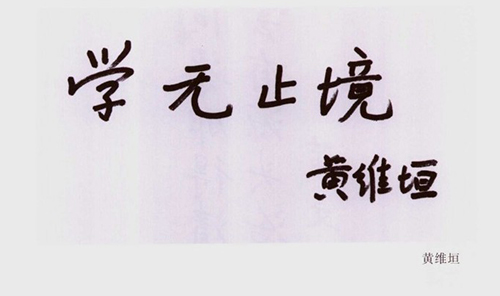 学无止境
黄维垣
黄维垣